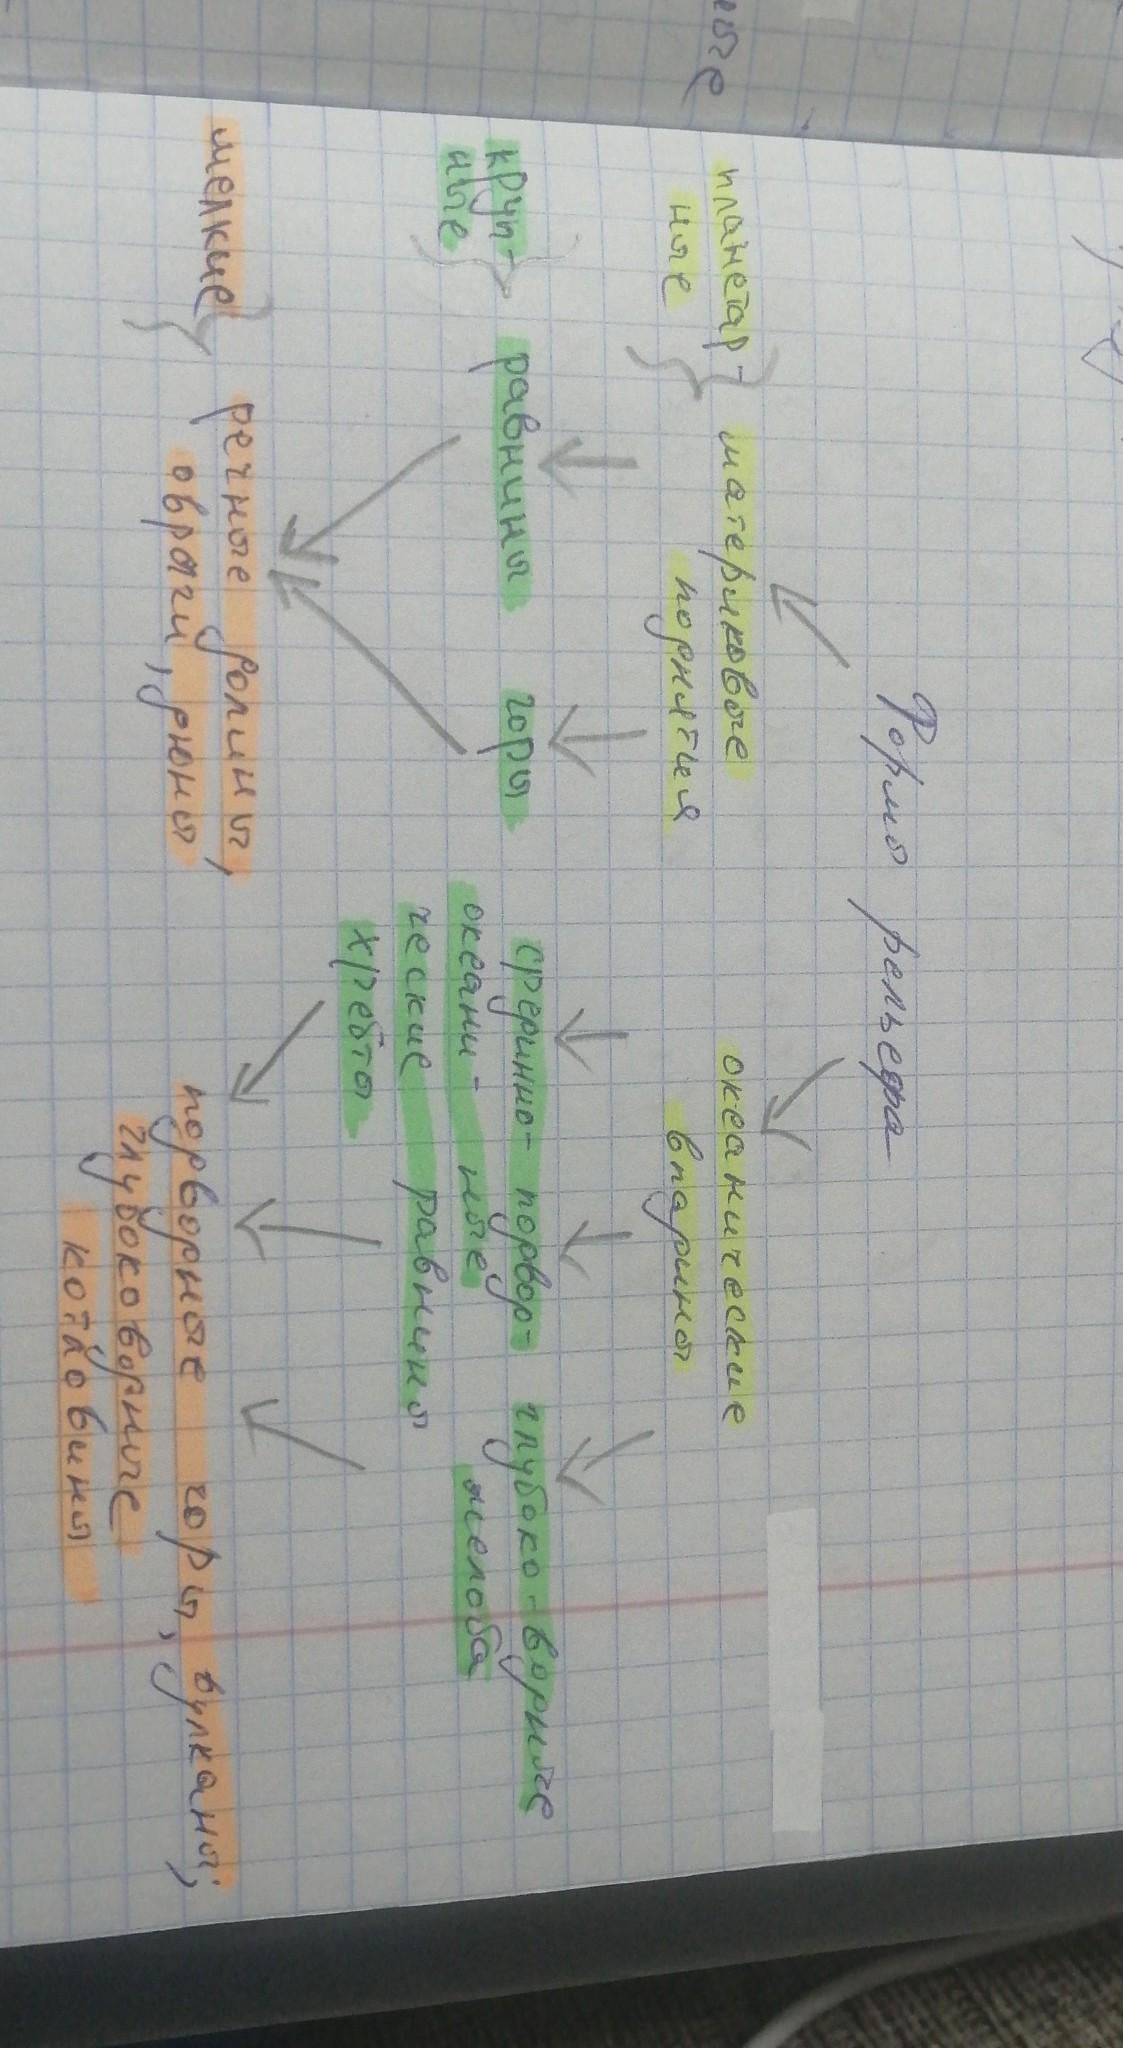 Формы рельефа
планетар-
ные
материковые
поднятия
океанические
впадины
круп-
ные
равнины
горы
срединно-
океани-
ческие
хребты
подвод-
ные
равнины
глубоко-водные
желоба
мелкие
речные долины,
овраги, дюны
подводные горы, вулканы,
глубоководные
котловины